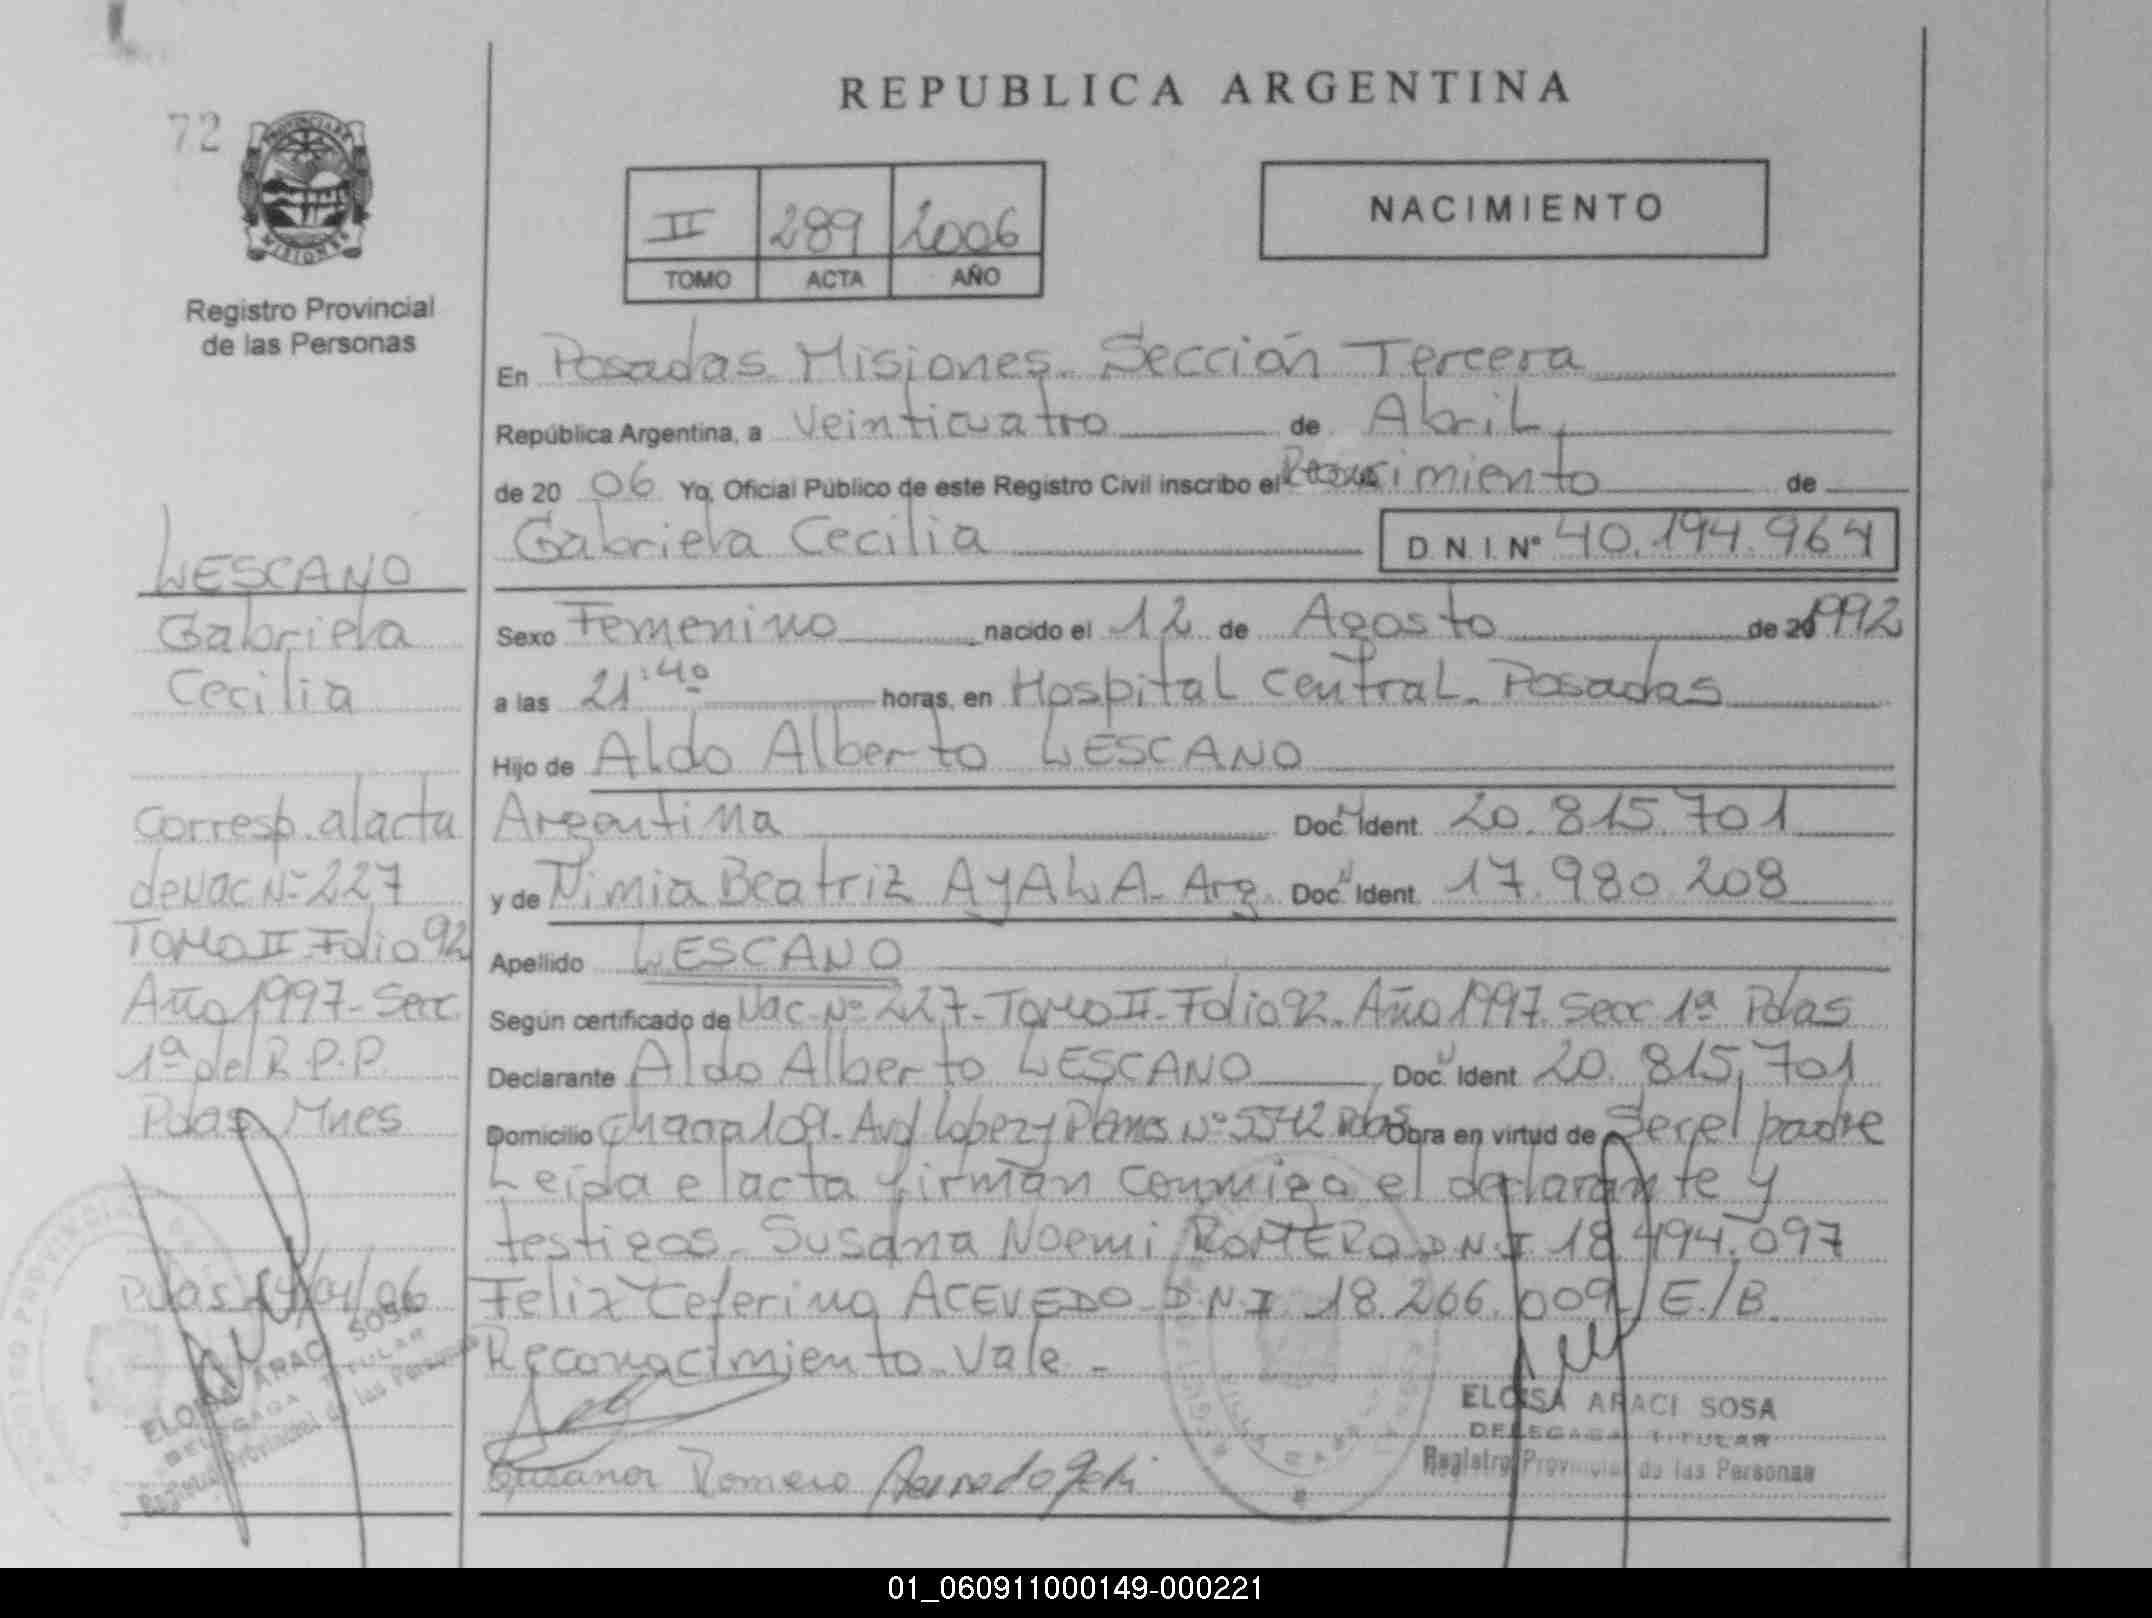 REPUBLICA ARGENTINA
72
PROVINCIA DE MISIONES
Registro Provincial
de las Personas
II 289 2006
TOMO ACTA AÑO
NACIMIENTO
En Posadas Misiones. Sección Tercera
República Argentina, a Veinticuatro de Abril
de 20 06 Yo, Oficial Público de este Registro Civil inscribo el de
Gabriela Cecilia D. N. I. Nº 40.194.964
Sexo Femenino nacido el 12 de Agosto de 20 1992
a las 21:40 horas, en Hospital Central. Posadas
Hijo de Aldo Alberto LESCANO
Argentina Doc. N Ident. 20.815.701
y de Nimia Beatriz AYALA - Arg. Doc. N Ident. 17.980.208
Apellido LESCANO
Según certificado de Nac. Nº 227 - Tomo II - Folio 92. Año 1997. Secc 1ª Pdas
Declarante Aldo Alberto LESCANO Doc. N Ident. 20.815.701
Domicilio Chacra 109 - Avd Lopez y Planes Nº 5542 Pdas Obra en virtud de Ser el padre
Leida el acta firman conmigo el declarante y
testigos - Susana Noemi ROMERO D.N.I 18.494.097
Felix Ceferino ACEVEDO - D.N.I 18.266.009 / E./B.
Reconocimiento. Vale -
Susana Romero
ELOISA ARACI SOSA
DELEGADA TITULAR
Registro Provincial de las Personas
LESCANO
Gabriela
Cecilia
Corresp. al acta
de Nac Nº 227
Tomo II - Folio 92
Año 1997 - Secc
1ª del R.P.P.
Pdas Mnes
Pdas 24/04/06
ELOISA ARACI SOSA
DELEGADA TITULAR
Registro Provincial de las Personas
01_060911000149-000221